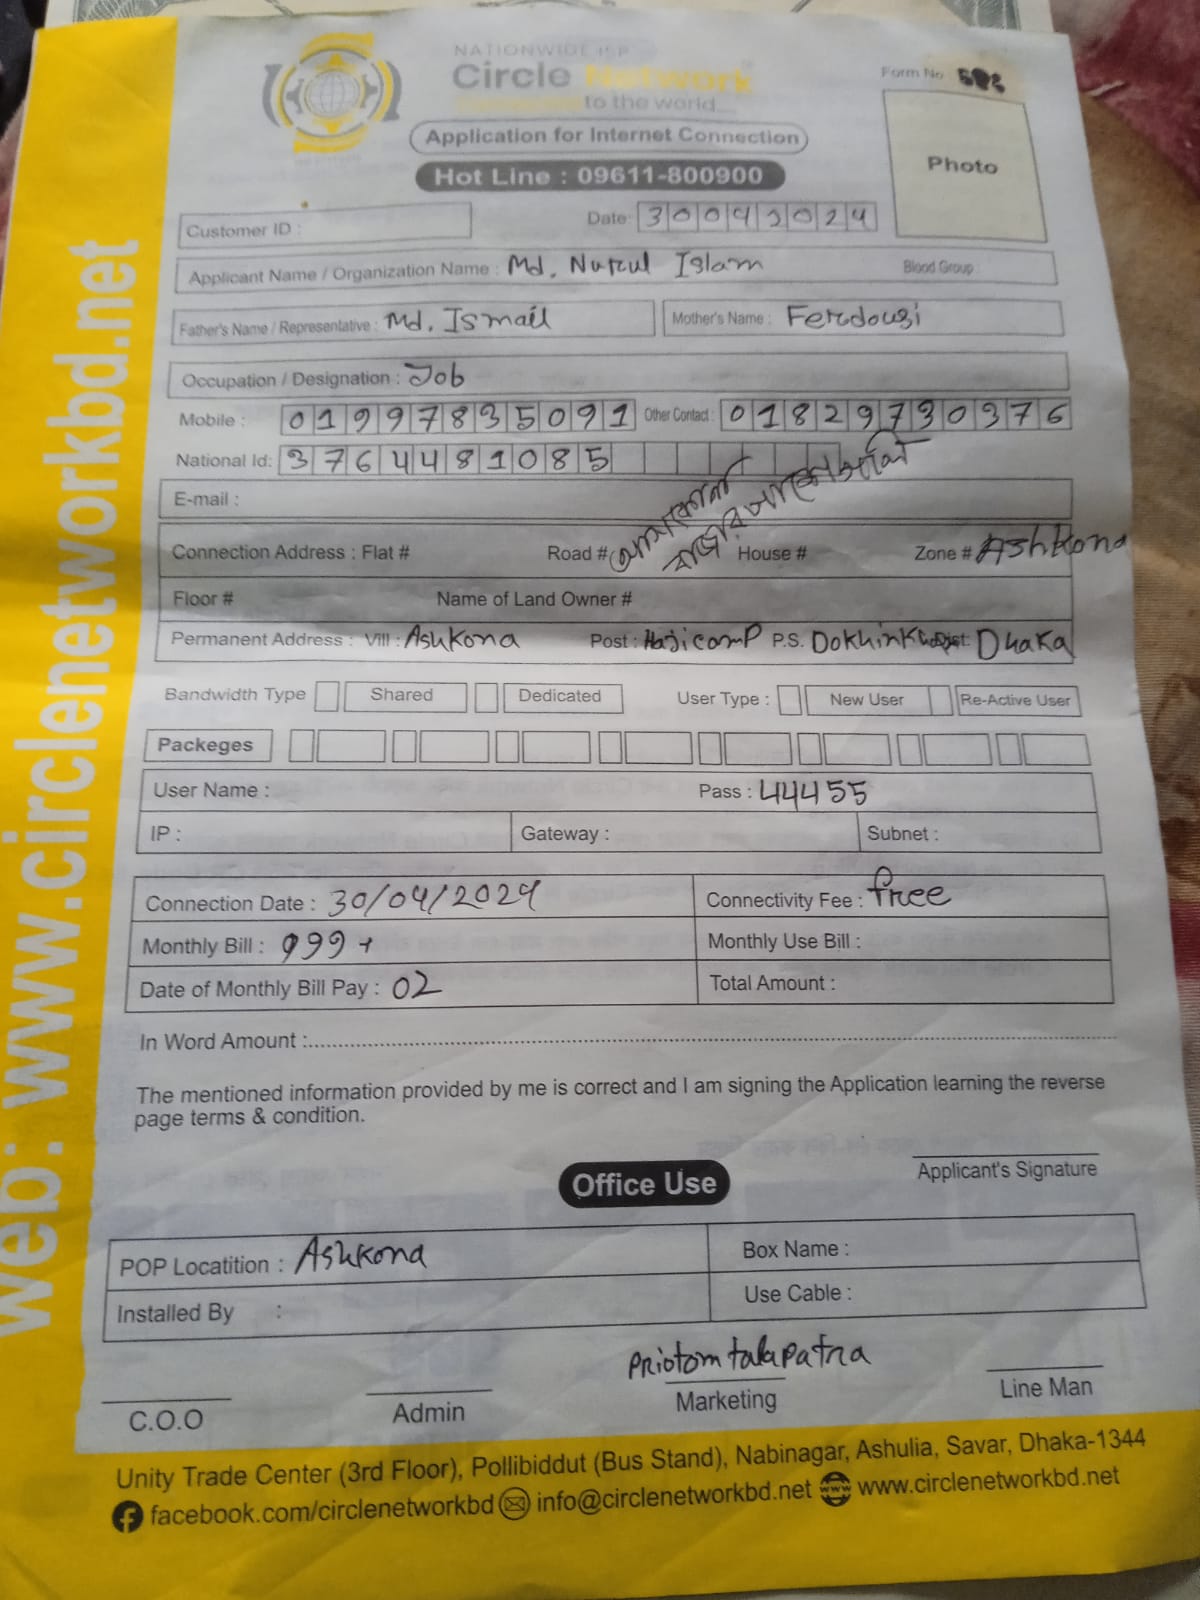 NATIONWIDE ISP
Circle Network
to the world
Form No
Application for Internet Connection
Hot Line : 09611-800900
Photo
Customer ID :
Date: 30042024
Applicant Name / Organization Name : Md. Nurul Islam Blood Group :
Father's Name / Representative : Md. Ismail Mother's Name : Ferdousi
Occupation / Designation : Job
Mobile : 01997835091 Other Contact : 01829730376
National Id: 3764481085
E-mail :
Connection Address : Flat # Road # House # Zone # Ashkona
Floor # Name of Land Owner #
Permanent Address : Vill : Ashkona Post : Hajicamp P.S. Dokhinkhan Dist: Dhaka
Bandwidth Type Shared Dedicated User Type : New User Re-Active User
Packeges
User Name : Pass : 44455
IP : Gateway : Subnet :
Connection Date : 30/04/2024 Connectivity Fee : free
Monthly Bill : 999 Monthly Use Bill :
Date of Monthly Bill Pay : 02 Total Amount :
In Word Amount :
The mentioned information provided by me is correct and I am signing the Application learning the reverse
page terms & condition.
Applicant's Signature
Office Use
POP Locatition : Ashkona Box Name :
Installed By : Use Cable :
Priotom talapatra
C.O.O Admin Marketing Line Man
Unity Trade Center (3rd Floor), Pollibiddut (Bus Stand), Nabinagar, Ashulia, Savar, Dhaka-1344
facebook.com/circlenetworkbd info@circlenetworkbd.net www.circlenetworkbd.net
web: www.circlenetworkbd.net